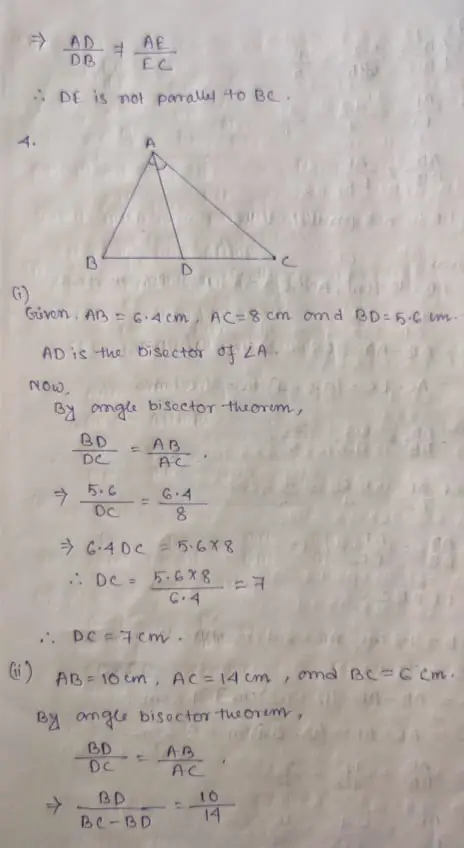 ⇒ AD/DB ≠ AE/EC
∴ DE is not parallel to BC.
4.
A
B D C
(i)
Given, AB = 6.4 cm, AC = 8 cm and BD = 5.6 cm.
AD is the bisector of ∠A.
Now,
By angle bisector theorem,
BD/DC = AB/AC.
⇒ 5.6/DC = 6.4/8
⇒ 6.4 DC = 5.6×8
∴ DC = 5.6×8/6.4 = 7
∴ DC = 7 cm.
(ii) AB = 10 cm, AC = 14 cm, and BC = 6 cm.
By angle bisector theorem,
BD/DC = AB/AC,
⇒ BD/BC-BD = 10/14